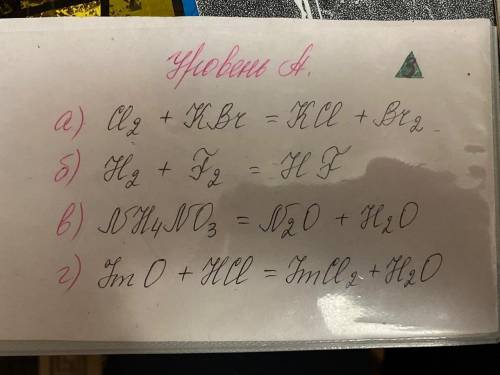 Уровень А.
а) Cl₂ + KBr = KCl + Br₂
б) H₂ + F₂ = HF
в) NH₄NO₃ = N₂O + H₂O
г) ZnO + HCl = ZnCl₂ + H₂O